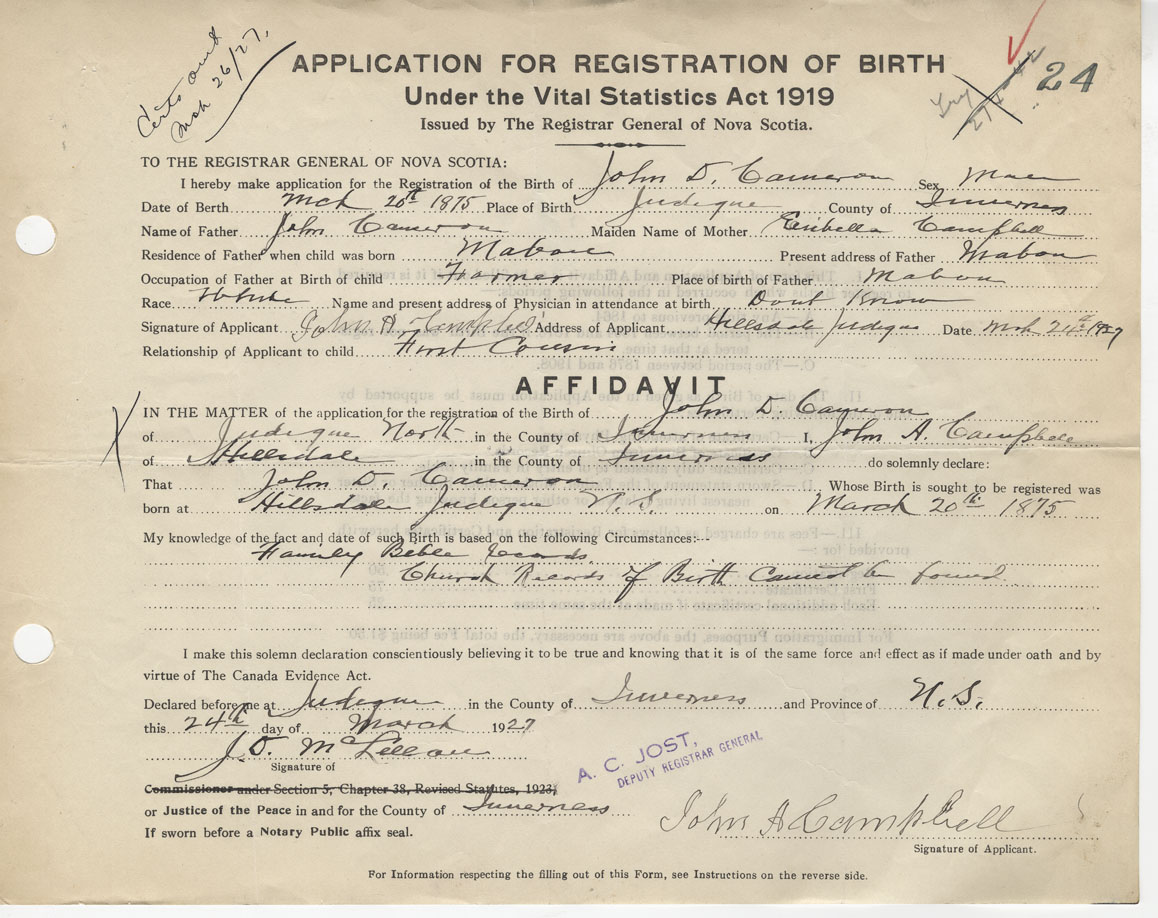 Certs and
Mch 26/27,
24
APPLICATION FOR REGISTRATION OF BIRTH
Under the Vital Statistics Act 1919
Issued by The Registrar General of Nova Scotia.
TO THE REGISTRAR GENERAL OF NOVA SCOTIA:
I hereby make application for the Registration of the Birth of John D. Cameron Sex Male
Date of Berth Mch 20th 1875 Place of Birth Judique County of Inverness
Name of Father John Cameron Maiden Name of Mother Campbell
Residence of Father when child was born Mabou Present address of Father Mabou
Occupation of Father at Birth of child Farmer Place of birth of Father Mabou
Race White Name and present address of Physician in attendance at birth Dont Know
Signature of Applicant John A. Campbell Address of Applicant Hillsdale Judique Date Mch 24th 1927
Relationship of Applicant to child First Cousin
AFFIDAVIT
IN THE MATTER of the application for the registration of the Birth of John D. Cameron
of Judique North in the County of Inverness I, John A. Campbell
of Hillsdale in the County of Inverness do solemnly declare:
That John D. Cameron Whose Birth is sought to be registered was
born at Hillsdale Judique N.S. on March 20th 1875
My knowledge of the fact and date of such Birth is based on the following Circumstances:--
Family Bible Records
Church Records of Birth Cannot be found
I make this solemn declaration conscientiously believing it to be true and knowing that it is of the same force and effect as if made under oath and by
virtue of The Canada Evidence Act.
Declared before me at Judique in the County of Inverness and Province of N.S.
this 24th day of March 1927
J. D. McLellan
Signature of
A. C. JOST,
DEPUTY REGISTRAR GENERAL
Commissioner under Section 5, Chapter 38, Revised Statutes, 1923,
or Justice of the Peace in and for the County of Inverness
If sworn before a Notary Public affix seal.
John A Campbell
Signature of Applicant.
For Information respecting the filling out of this Form, see Instructions on the reverse side.